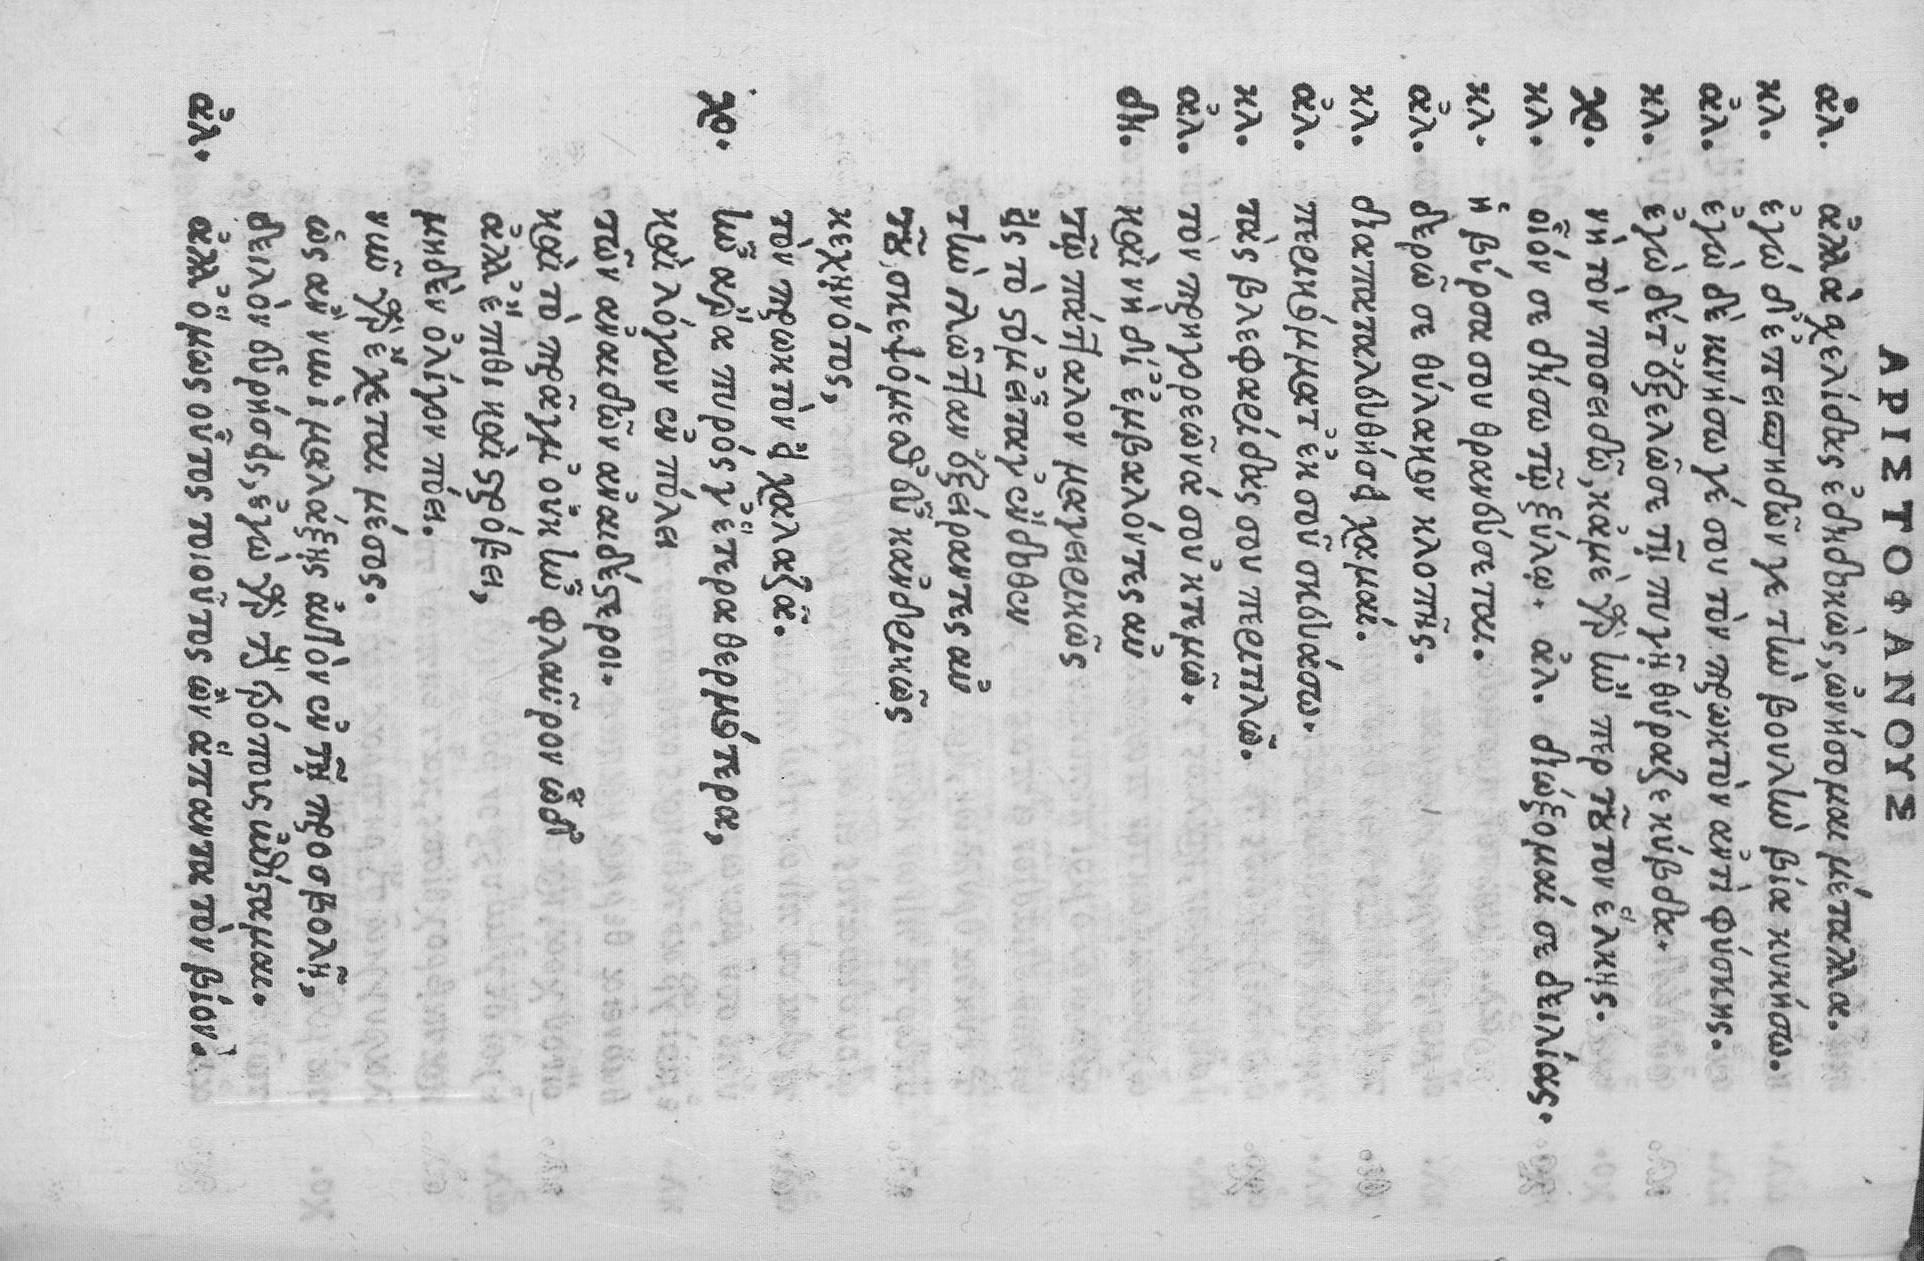 ΑΡΙΣΤΟΦΑΝΟΥΣ
ἀλ. ἀλλὰ σχελίδας ἐδηδοκὼς, ὠνήσομαι μέταλλα.
κλ. ἐγὼ δ' ἐπεισπηδῶν γε τὴν βουλὴν βίᾳ κυκήσω.
ἀλ. ἐγὼ δὲ κινήσω γέ σου τὸν πρωκτὸν ἀντὶ φύσκης.
κλ. ἐγὼ δέ γ' ἐξελῶ σε τῇ πυγῇ θύραζε κύβδα.
χο. νὴ τὸν ποσειδῶ, κἀμὲ γὰρ ἤν περ τοῦτον ἕλκῃς.
κλ. οἷόν σε δήσω τῷ ξύλῳ. ἀλ. διώξομαί σε δειλίας.
κλ. ἡ βύρσα σου θρανεύσεται.
ἀλ. δερῶ σε θύλακον κλοπῆς.
κλ. διαπατταλευθήσῃ χαμαί.
ἀλ. περικόμματ' ἐκ σοῦ σκευάσω.
κλ. τὰς βλεφαρίδας σου περιτιλῶ.
ἀλ. τὸν πρηγορεῶνά σου ἐκτεμῶ.
δη. καὶ νὴ δί' ἐμβαλόντες αὐ
τῷ πάτταλον μαγειρικῶς
ἐς τὸ στόμ' εἶτά γ' ἔνδοθεν
τὴν γλῶτταν ἐξείραντες αὐ
τοῦ, σκεψόμεσθ' εὖ κἀνδρικῶς
κεχηνότος,
τὸν πρωκτὸν εἰ χαλαζᾷ.
χο. ἦν ἄρα πυρός γ' ἕτερα θερμότερα,
καὶ λόγων ἐν πόλει
τῶν ἀναιδῶν ἀναιδέστεροι.
καὶ τὸ πρᾶγμ' οὐκ ἦν φλαῦρον ὧδ'
ἀλλ' ἔπιθι καὶ στρόβει,
μηδὲν ὀλίγον πόει.
νῦν γὰρ ἔχεται μέσος.
ὡς ἂν νυνὶ μαλάξῃς αὐτὸν ἐν τῇ προσβολῇ,
δειλὸν εὑρήσεις, ἐγὼ γὰρ τοὺς τρόπους ἐπίσταμαι.
ἀλ. ἀλλ' ὅμως οὗτος τοιοῦτος ὢν ἅπαντα τὸν βίον.